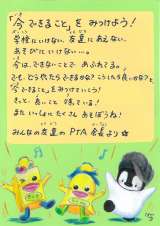 「今できること」を みつけよう!
学校にいけない。友達にあえない。
あそびにいけない…。
今は、できないことで、あふれてる。
でも、どうやったらできるかな?こうしたら良いかな?と
「今できること」をみつけていこう!
きっと、良いこと 待っている!
また いっしょに たくさん あそぼうね!
みんなの友達の PTA 会長より☆